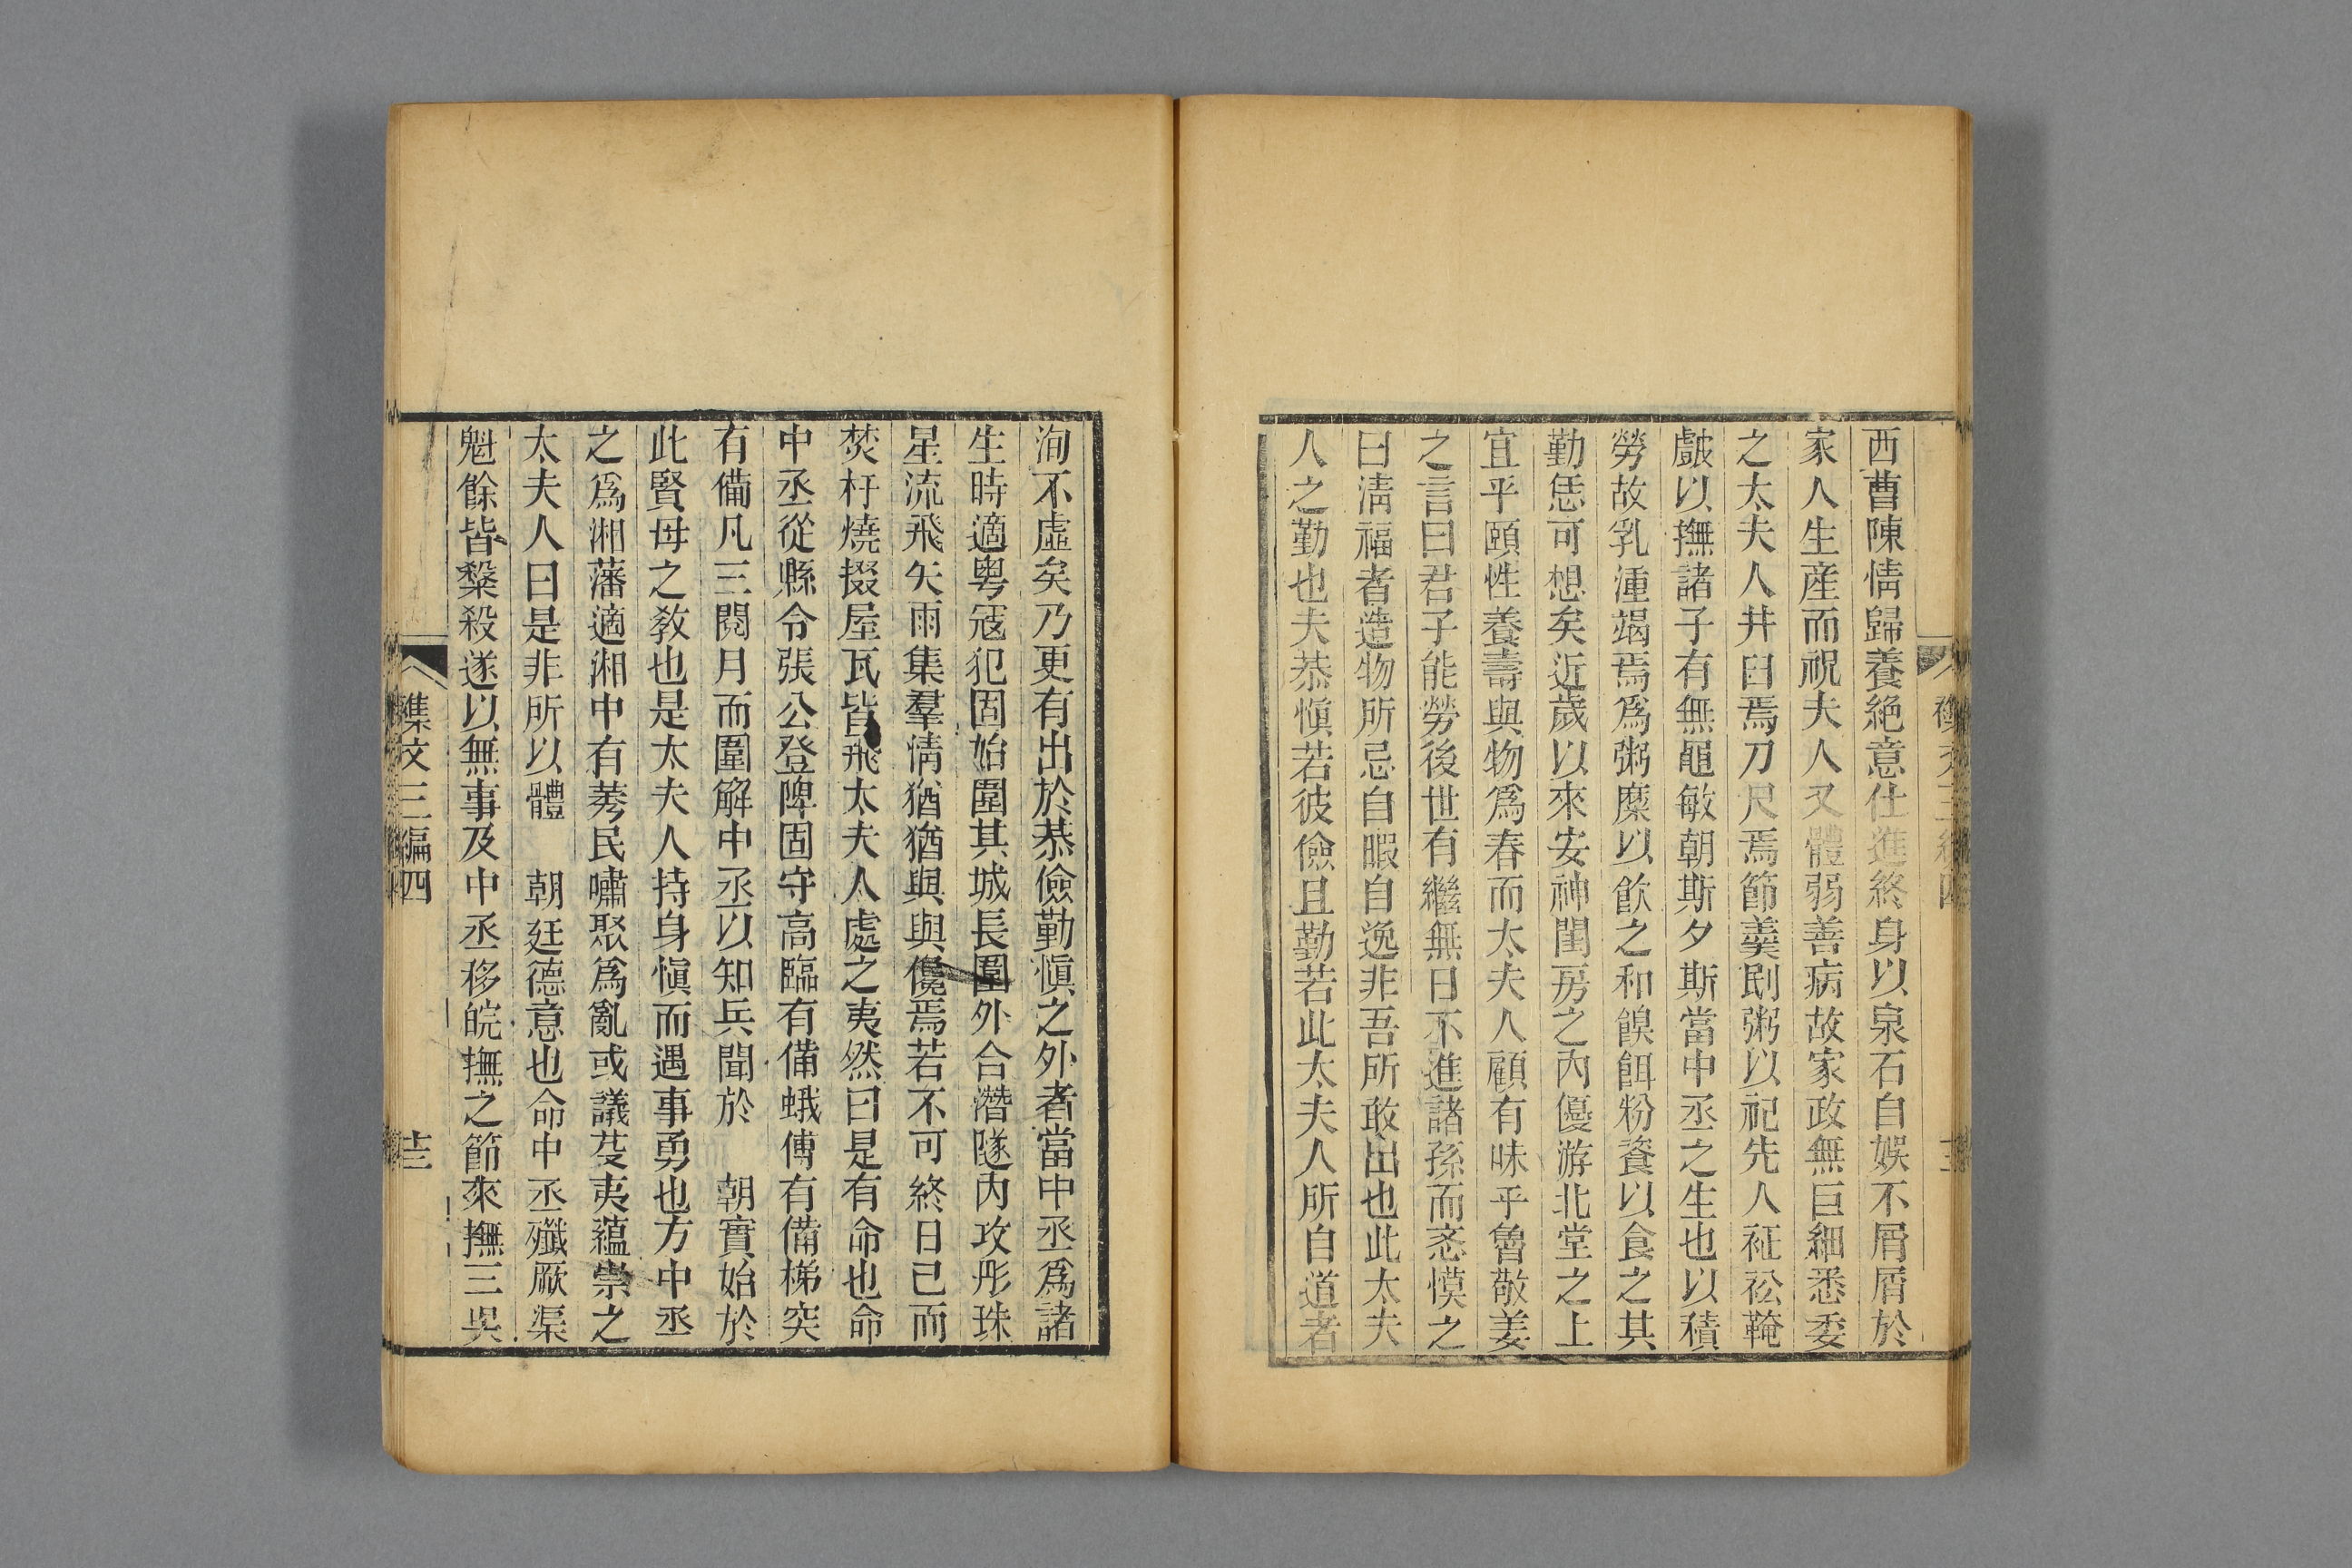 西曹陳情歸養絶意仕進終身以泉石自娛不屑屑於
家人生産而祝夫人又體弱善病故家政無巨細悉委
之太夫人井臼焉刀尺焉節羹剧粥以祀先人袵衳鞾
皵以撫諸子有無黽敏朝斯夕斯當中丞之生也以積
勞故乳湩竭焉爲粥糜以飲之和餺餌粉餈以食之其
勤恁可想矣近歲以來安神閨房之內優游北堂之上
宜乎頤性養壽與物爲春而太夫人顧有味乎魯敬姜
之言曰君子能勞後世有繼無日不進諸孫而忞慔之
曰淸福者造物所忌自暇自逸非吾所敢出也此太夫
人之勤也夫恭愼若彼儉且勤若此太夫人所自道者
洵不虛矣乃更有出於恭儉勤愼之外者當中丞爲諸
生時適粵寇犯固始圍其城長圍外合潛隧內攻彤珠
星流飛矢雨集羣情猶猶與與儳焉若不可終日已而
焚杅燒掇屋瓦皆飛太夫人處之夷然曰是有命也命
中丞從縣令張公登陴固守高臨有備蛾傅有備梯突
有備凡三閱月而圍解中丞以知兵聞於　朝實始於
此賢母之敎也是太夫人持身愼而遇事勇也方中丞
之爲湘藩適湘中有莠民嘯聚爲亂或議芟夷蘊崇之
太夫人曰是非所以體　朝廷德意也命中丞殲厥渠
魁餘皆槃殺遂以無事及中丞移皖撫之節來撫三吳
襍文三編四